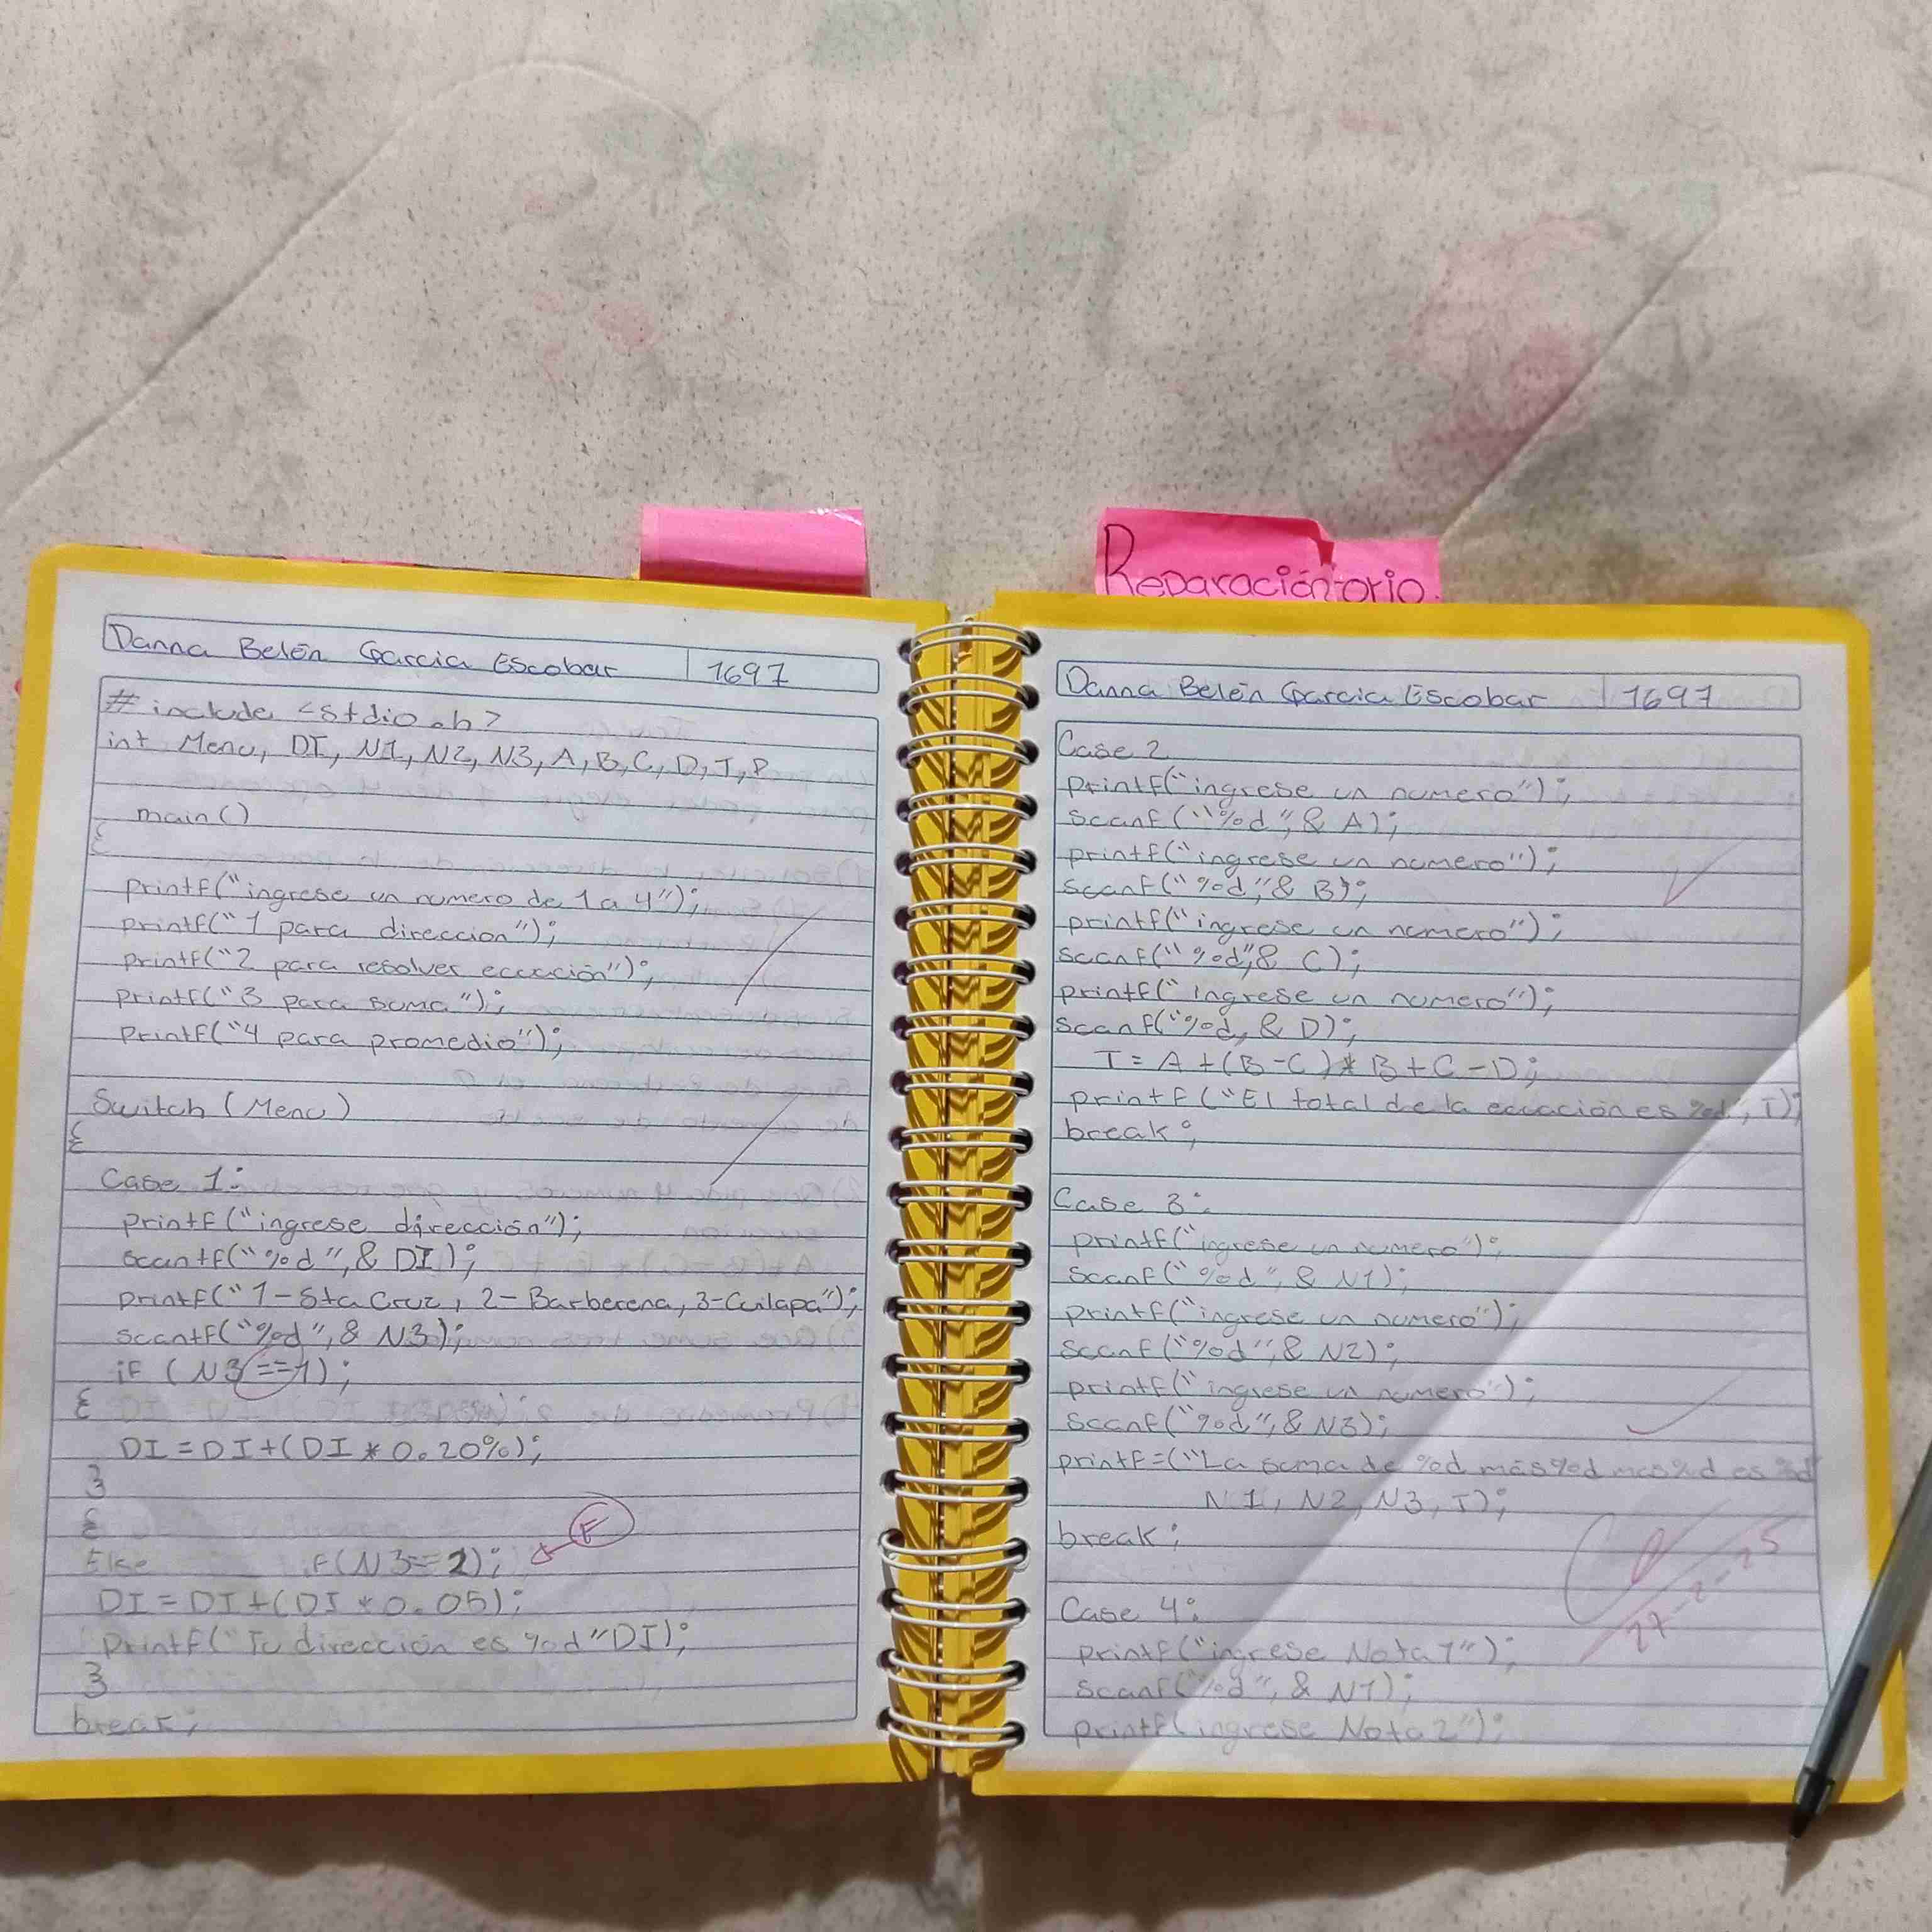 Reparación orio.
Danna Belén Garcia Escobar 1697
# include <stdio.h>
int Menu, DI, N1, N2, N3, A, B, C, D, T, P
main()
{
printf("ingrese un numero de 1 a 4");
printf("1 para direccion");
printf("2 para resolver ecuación");
printf("3 para suma");
printf("4 para promedio");
Switch (Menu)
{
Case 1:
printf("ingrese dirección");
scantf("%d", & DI);
printf("1-Sta Cruz, 2-Barberena, 3-Cuilapa");
scantf("%d", & N3);
if (N3 ==1);
{
DI = DI+(DI * 0.20%);
}
{
E
Else F(N3==2);
DI = DI+(DI * 0.05);
printf("Tu dirección es %d"DI);
}
break;
Danna Belén Garcia Escobar 1697
Case 2
printf("ingrese un numero");
scanf("%d",& A);
printf("ingrese un numero");
scanf("%d,"& B);
printf("ingrese un numero");
scanf("%d",& C);
printf("ingrese un numero");
scanf("%d, & D);
T = A +(B-C)* B+C-D;
printf("El total de la ecuación es %d", T);
break;
Case 3:
printf("ingrese un numero");
scanf("%d", & N1);
printf("ingrese un numero");
scanf("%d",& N2);
printf("ingrese un numero");
scanf("%d",& N3);
printf=("La suma de %d más %d mas %d es %d
N1, N2, N3, T);
break;
27-2-25
Case 4:
printf("ingrese Nota 1");
scanf("%d", & N1);
printf(ingrese Nota 2");